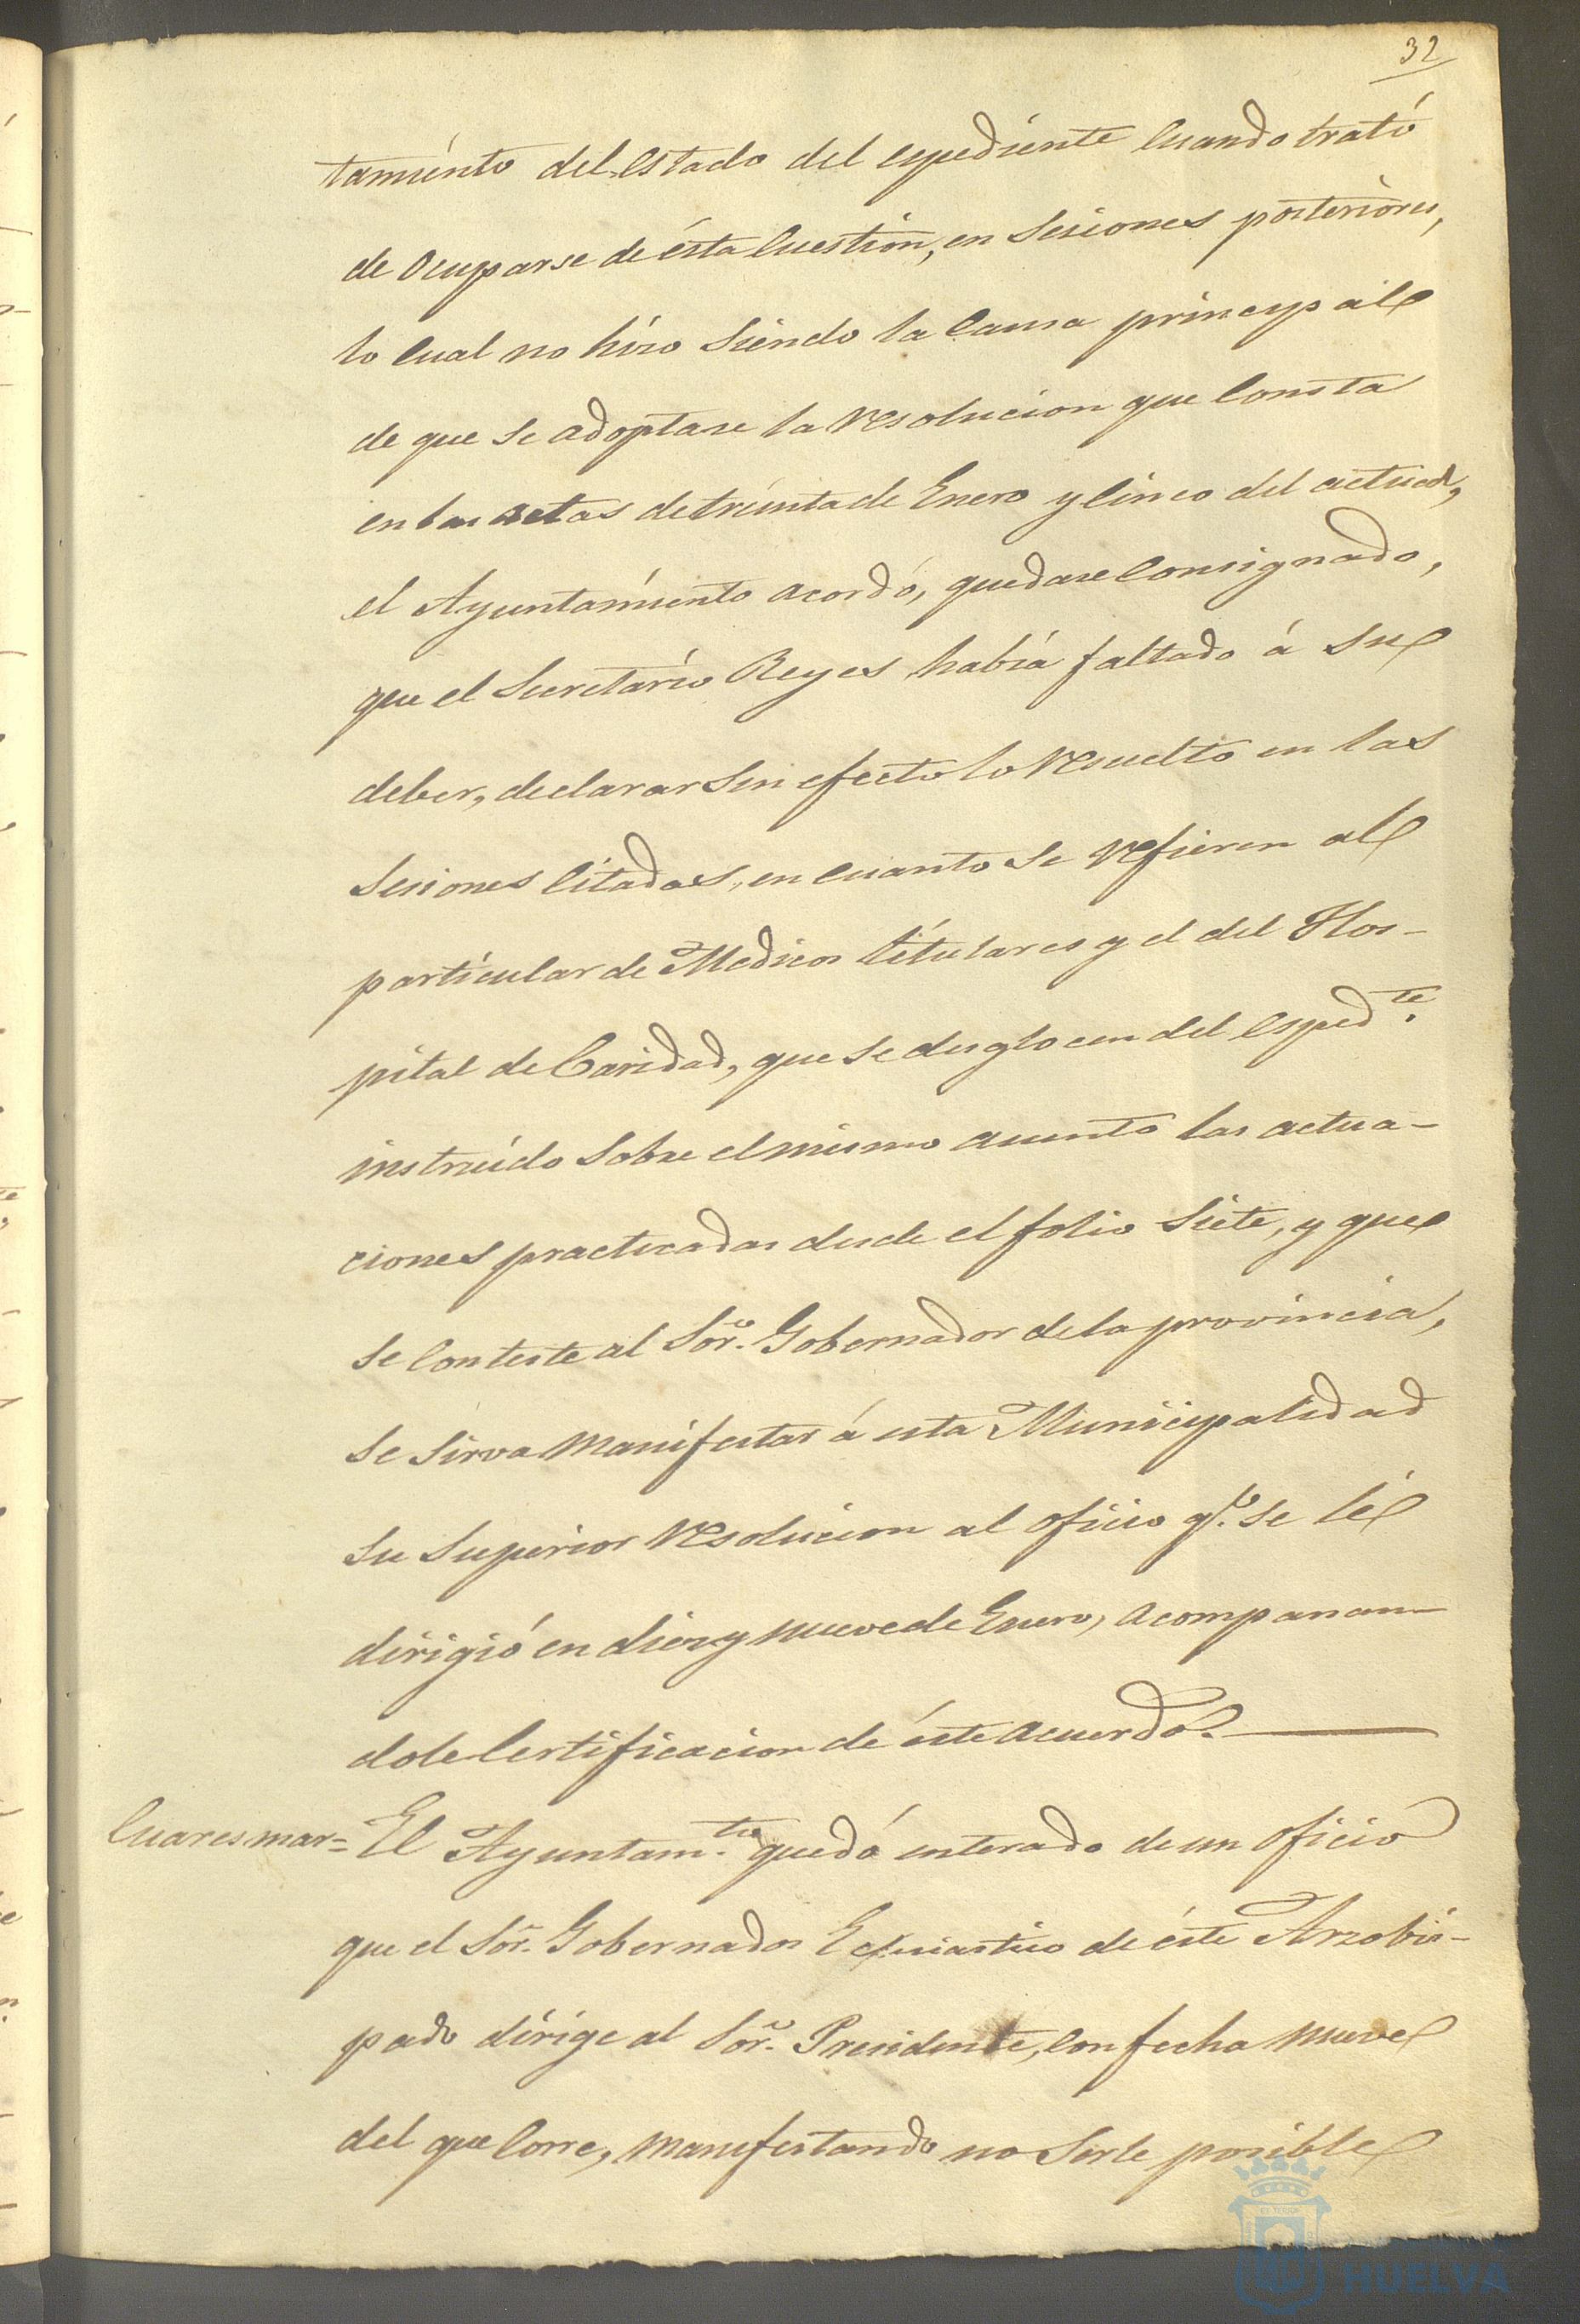 32
tamiento del estado del espediente cuando trató
de ocuparse de ésta cuestion, en sesiones posteriores,
lo cual no hizo siendo la causa principal
de que se adoptase la resolucion que consta
en las actas de treinta de Enero y cinco del actual,
el Ayuntamiento acordó, quedase consignado,
que el Secretario Reyes habia faltado á su
deber, declarar sin efecto lo resuelto en las
sesiones citadas, en cuanto se refieren al
particular de Medicos titulares y el del Hos-
pital de Caridad, que se desglocen del esped.te
instruido sobre el mismo asunto las actua-
ciones practicadas desde el folio siete, y que
se conteste al Sor. Gobernador de la provincia,
se sirva manifestar á esta Municipalidad
su superior resolucion al oficio q.e se le
dirigió en diez y nueve de Enero, acompanan-
dole certificacion de éste acuerdo.
Cuaresmar= El Ayuntam.to quedó enterado de un oficio
que el Sor. Gobernador Eclesiastico de éste Arzobis-
pado dirige al Sor. Presidente, con fecha nueve
del que corre, manifestando no serle posible
HUELVA